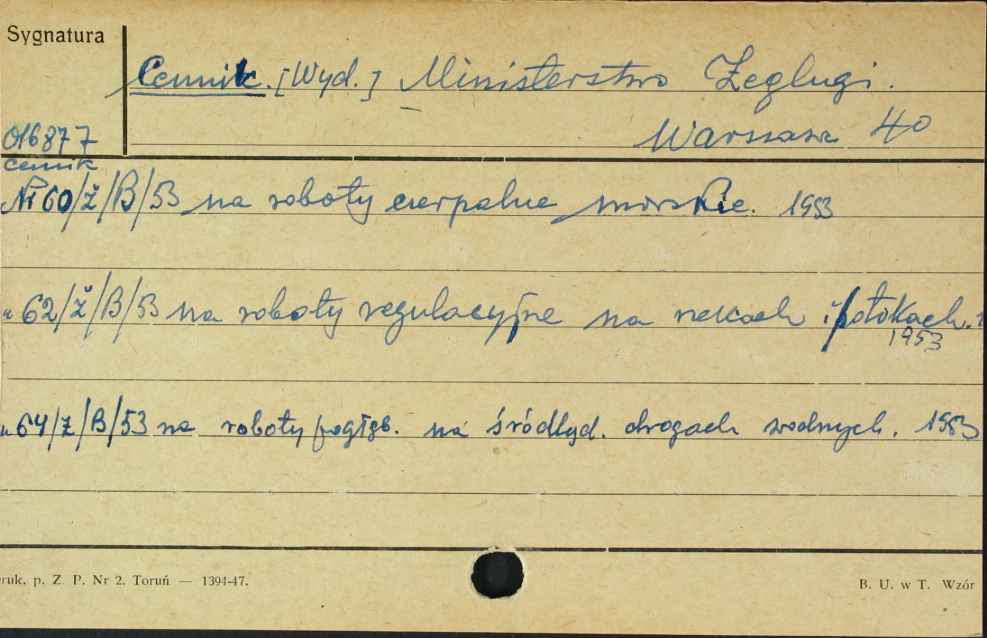 Sygnatura
Cennik. [Wyd.] Ministerstwo Żeglugi.
016877 Warszawa 40
cennik
Nr 60/Ż/B/53 na roboty czerpalne morskie. 1953
" 62/Ż/B/53 na roboty regulacyjne na rzekach i potokach.
1953
" 64/Ż/B/53 na roboty pogłęb. na śródląd. drogach wodnych. 1953
ruk. p. Z. P. Nr 2. Toruń — 1394-47. B. U. w T. Wzór